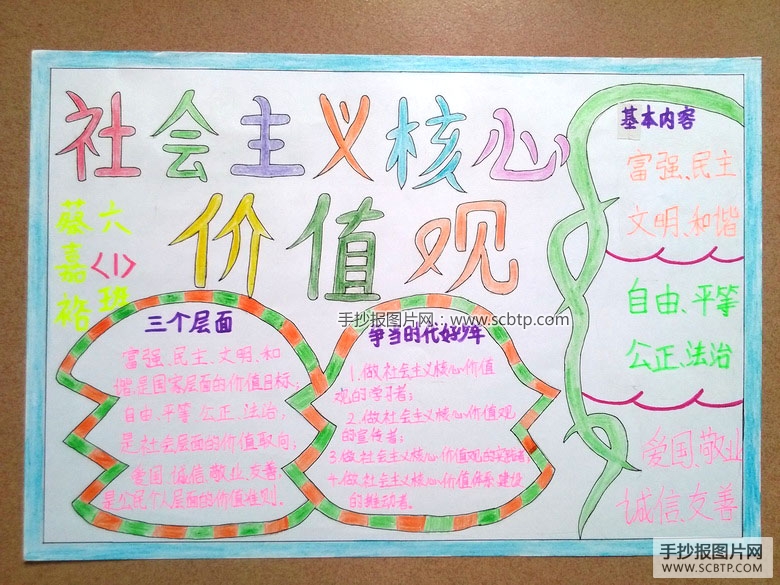 社会主义核心
价值观
蔡嘉裕
六
<1>
班
三个层面
富强、民主、文明、和
谐,是国家层面的价值目标;
自由、平等、公正、法治;
是社会层面的价值取向;
爱国、诚信、敬业、友善;
是公民个人层面的价值准则。
争当时代好少年
1.做社会主义核心价值
观的学习者;
2.做社会主义核心价值观
的宣传者;
3.做社会主义核心价值观的实践者;
4.做社会主义核心价值体系建设
的推动者。
基本内容
富强、民主
文明、和谐
自由、平等
公正、法治
爱国、敬业
诚信、友善
手抄报图片网:www.scbtp.com
手抄报图片网
WWW.SCBTP.COM